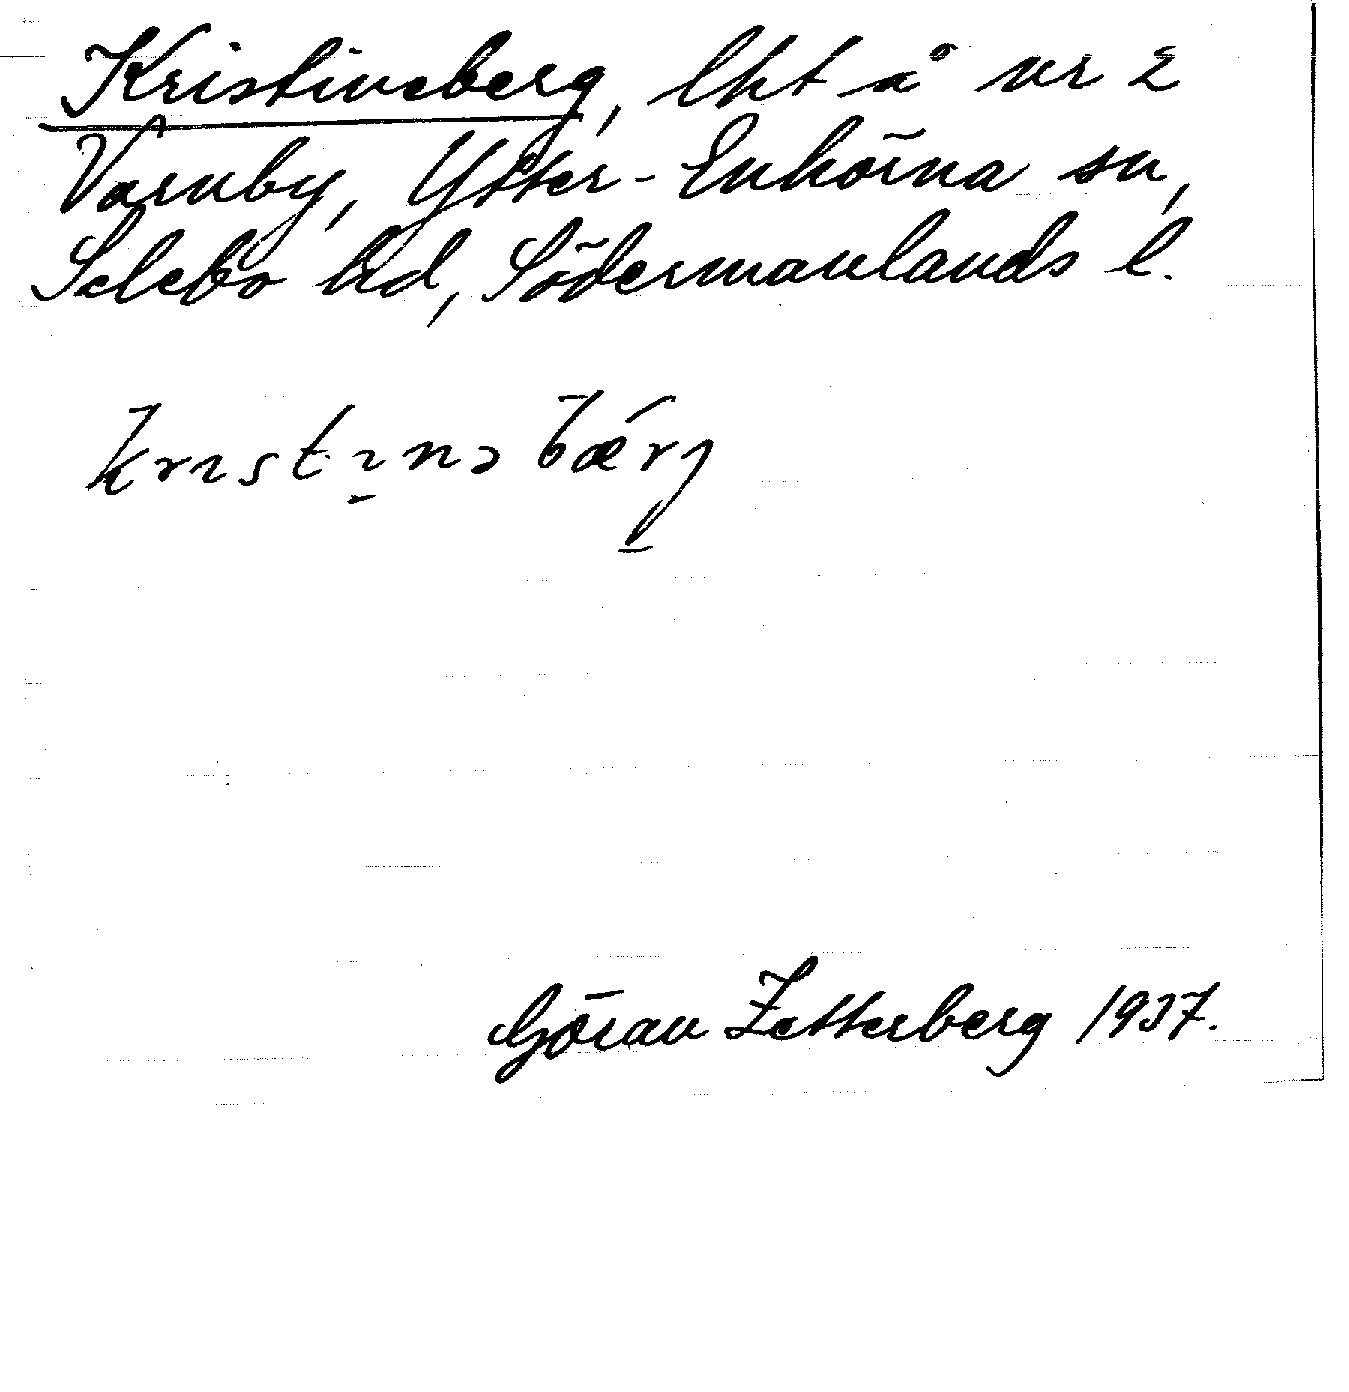 Kristineberg, lht å nr 2
Varnby, Ytter-Enhörna sn,
Selebo hd, Södermanlands l.
krıstı̱nəbǽrj
Göran Zetterberg 1937.